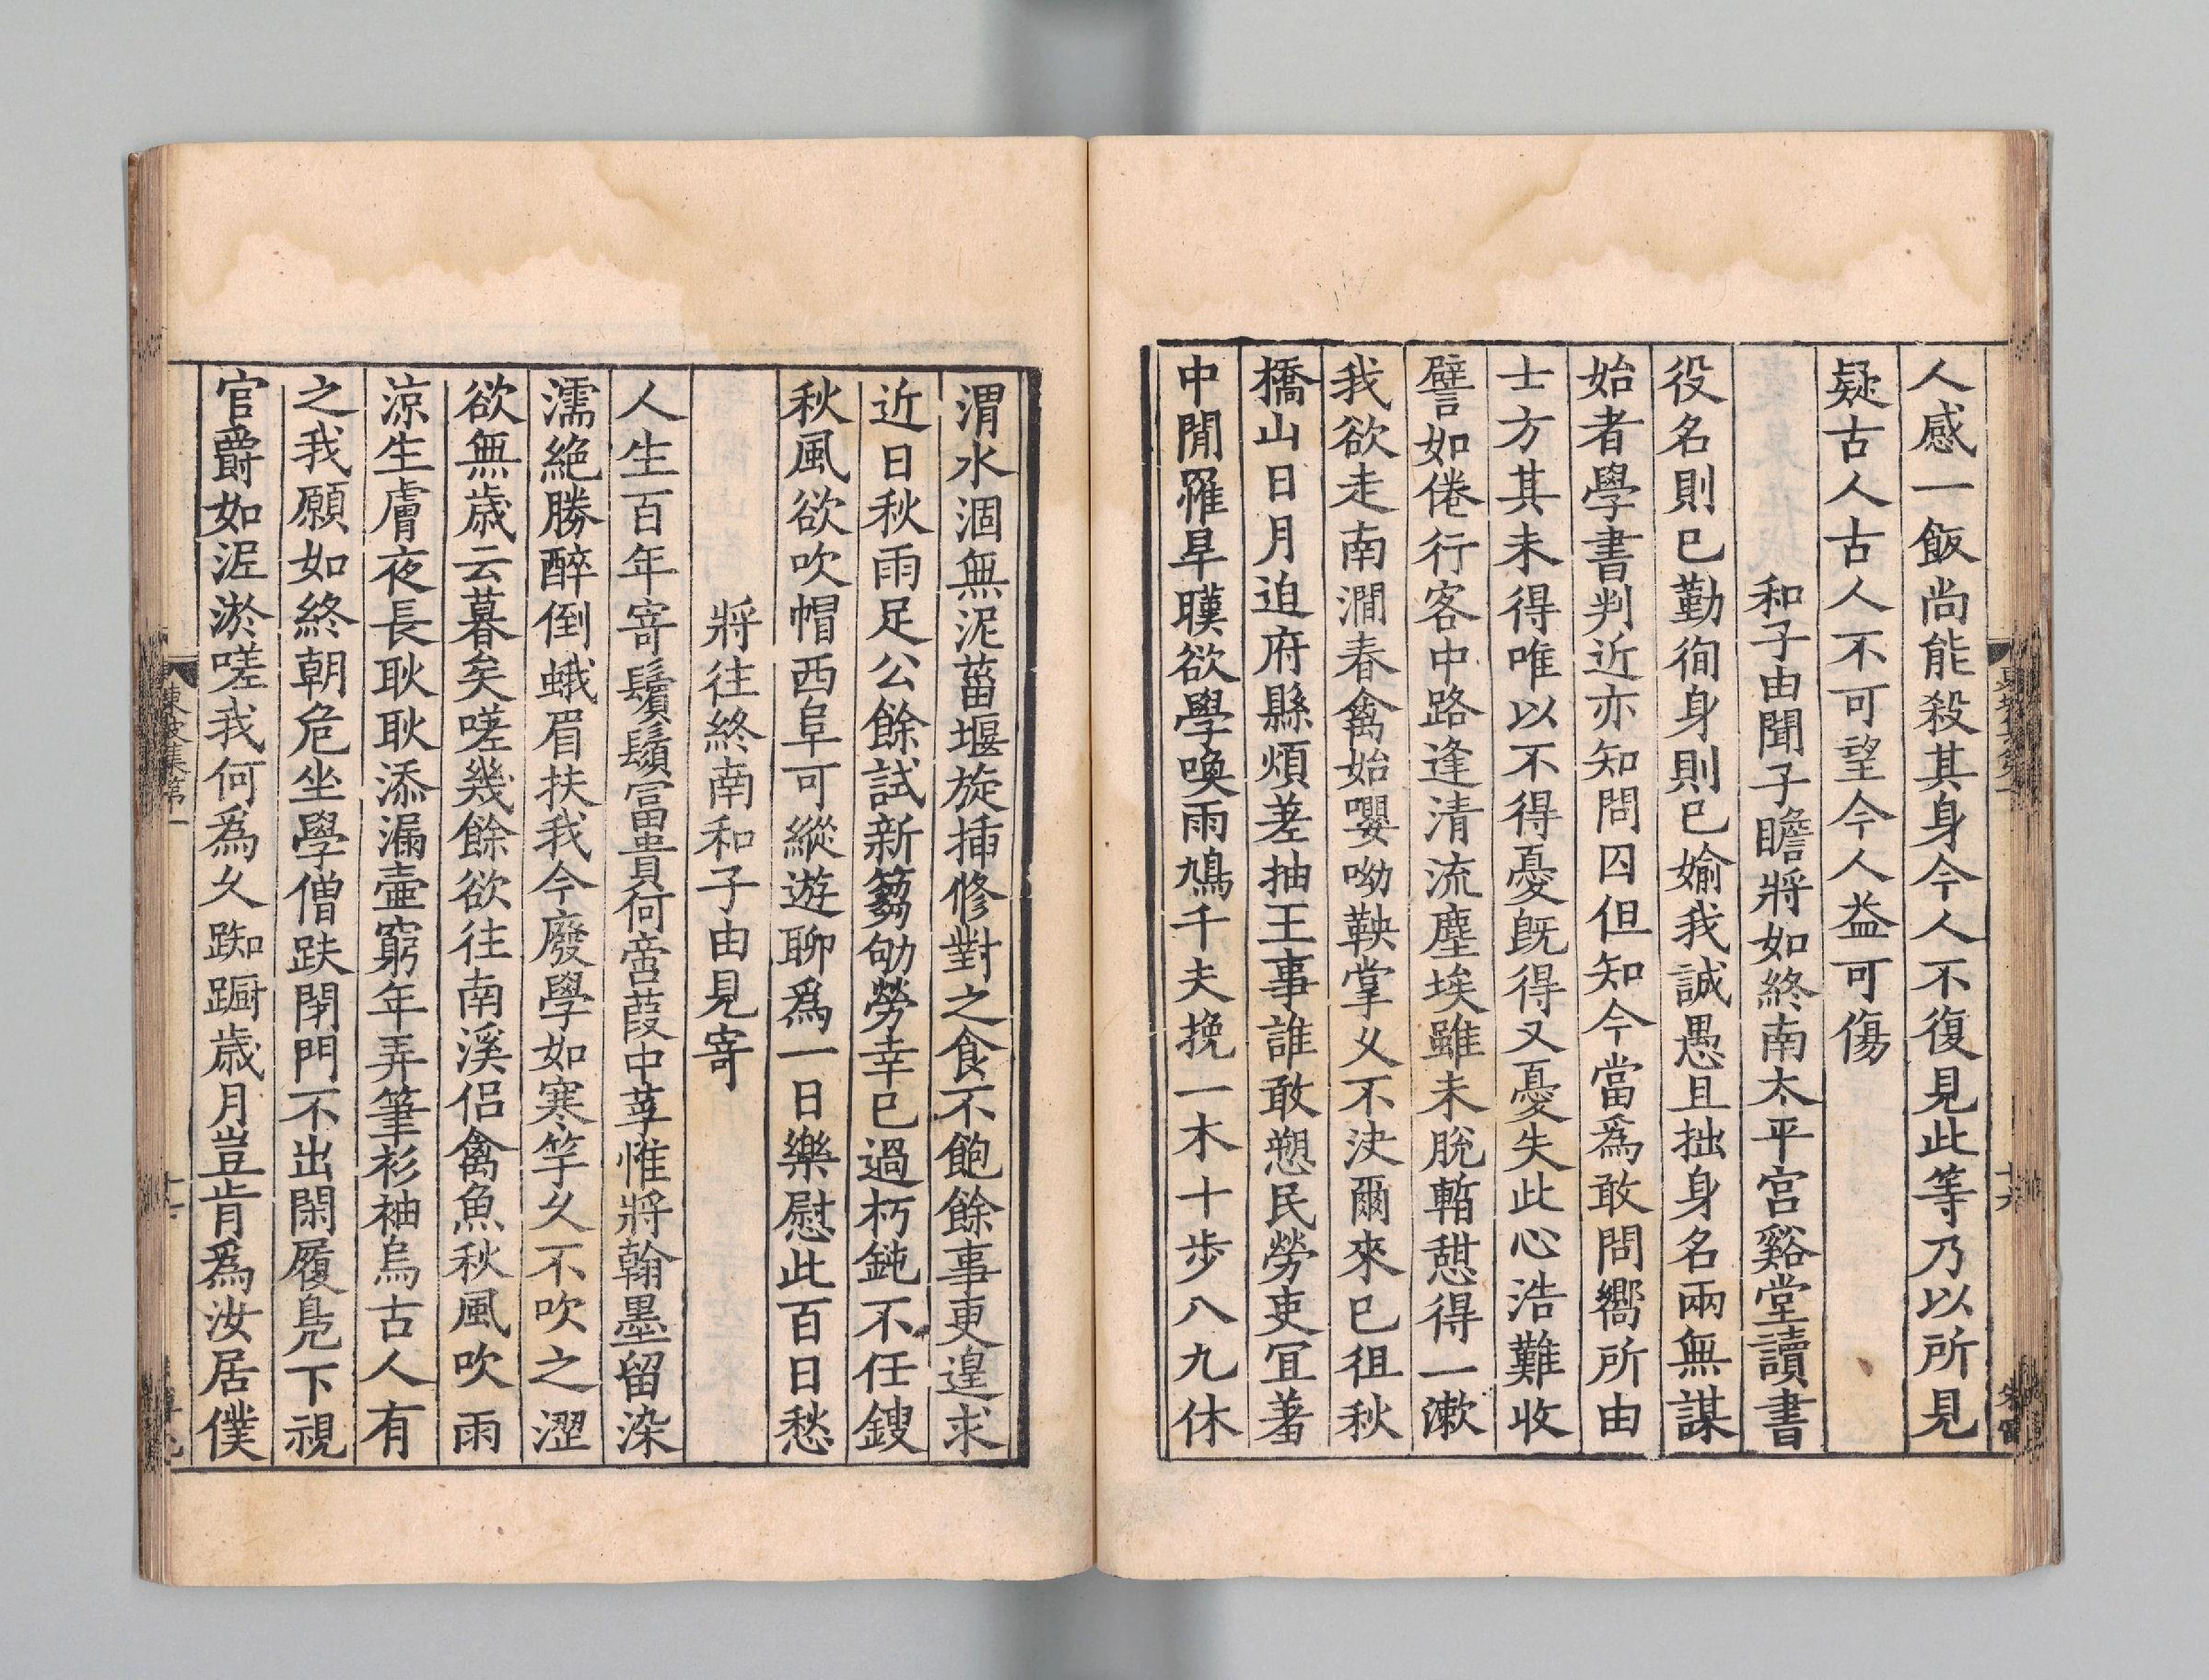 人感一飯尚能殺其身今人不復見此等乃以所見
疑古人古人不可望今人益可傷
和子由聞子瞻將如終南太平宮谿堂讀書
役名則已勤徇身則已媮我誠愚且拙身名兩無謀
始者學書判近亦知問囚但知今當爲敢問嚮所由
士方其未得唯以不得憂旣得又憂失此心浩難收
譬如倦行客中路逢清流塵埃雖未脫暫憇得一漱
我欲走南澗春禽始嚶呦鞅掌乆不决爾來已徂秋
橋山日月迫府縣煩差抽王事誰敢愬民勞吏宜羞
中閒罹旱暵欲學喚雨鳩千夫挽一木十步八九休
渭水涸無泥菑堰旋揷修對之食不飽餘事更遑求
近日秋雨足公餘試新篘劬勞幸已過朽鈍不任鎪
秋風欲吹帽西阜可縱遊聊爲一日樂慰此百日愁
將往終南和子由見寄
人生百年寄鬢鬚富貴何啻葭中莩惟將翰墨留染
濡絶勝醉倒蛾眉扶我今廢學如寒竽乆不吹之澀
欲無歲云暮矣嗟幾餘欲往南溪侣禽魚秋風吹雨
涼生膚夜長耿耿添漏壷窮年弄筆衫袖烏古人有
之我願如終朝危坐學僧趺閉門不出閑履鳧下視
官爵如泥淤嗟我何爲乆踟蹰歲月豈肯爲汝居僕
東坡集第一